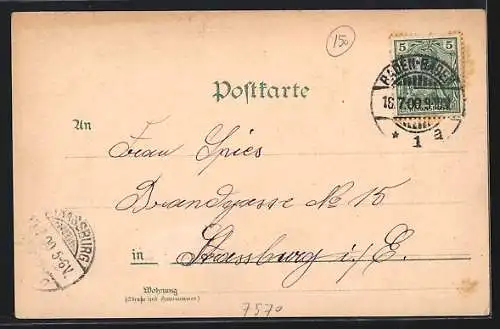 150
5 5
BADEN-BADEN
16.7.00.9-10.V.
* 1 a
Postkarte
An
Frau Spies
Brandgasse No 15
in Strassburg i/E.
STRASSBURG
5-6V
Wohnung
(Straße und Hausnummer)
7570